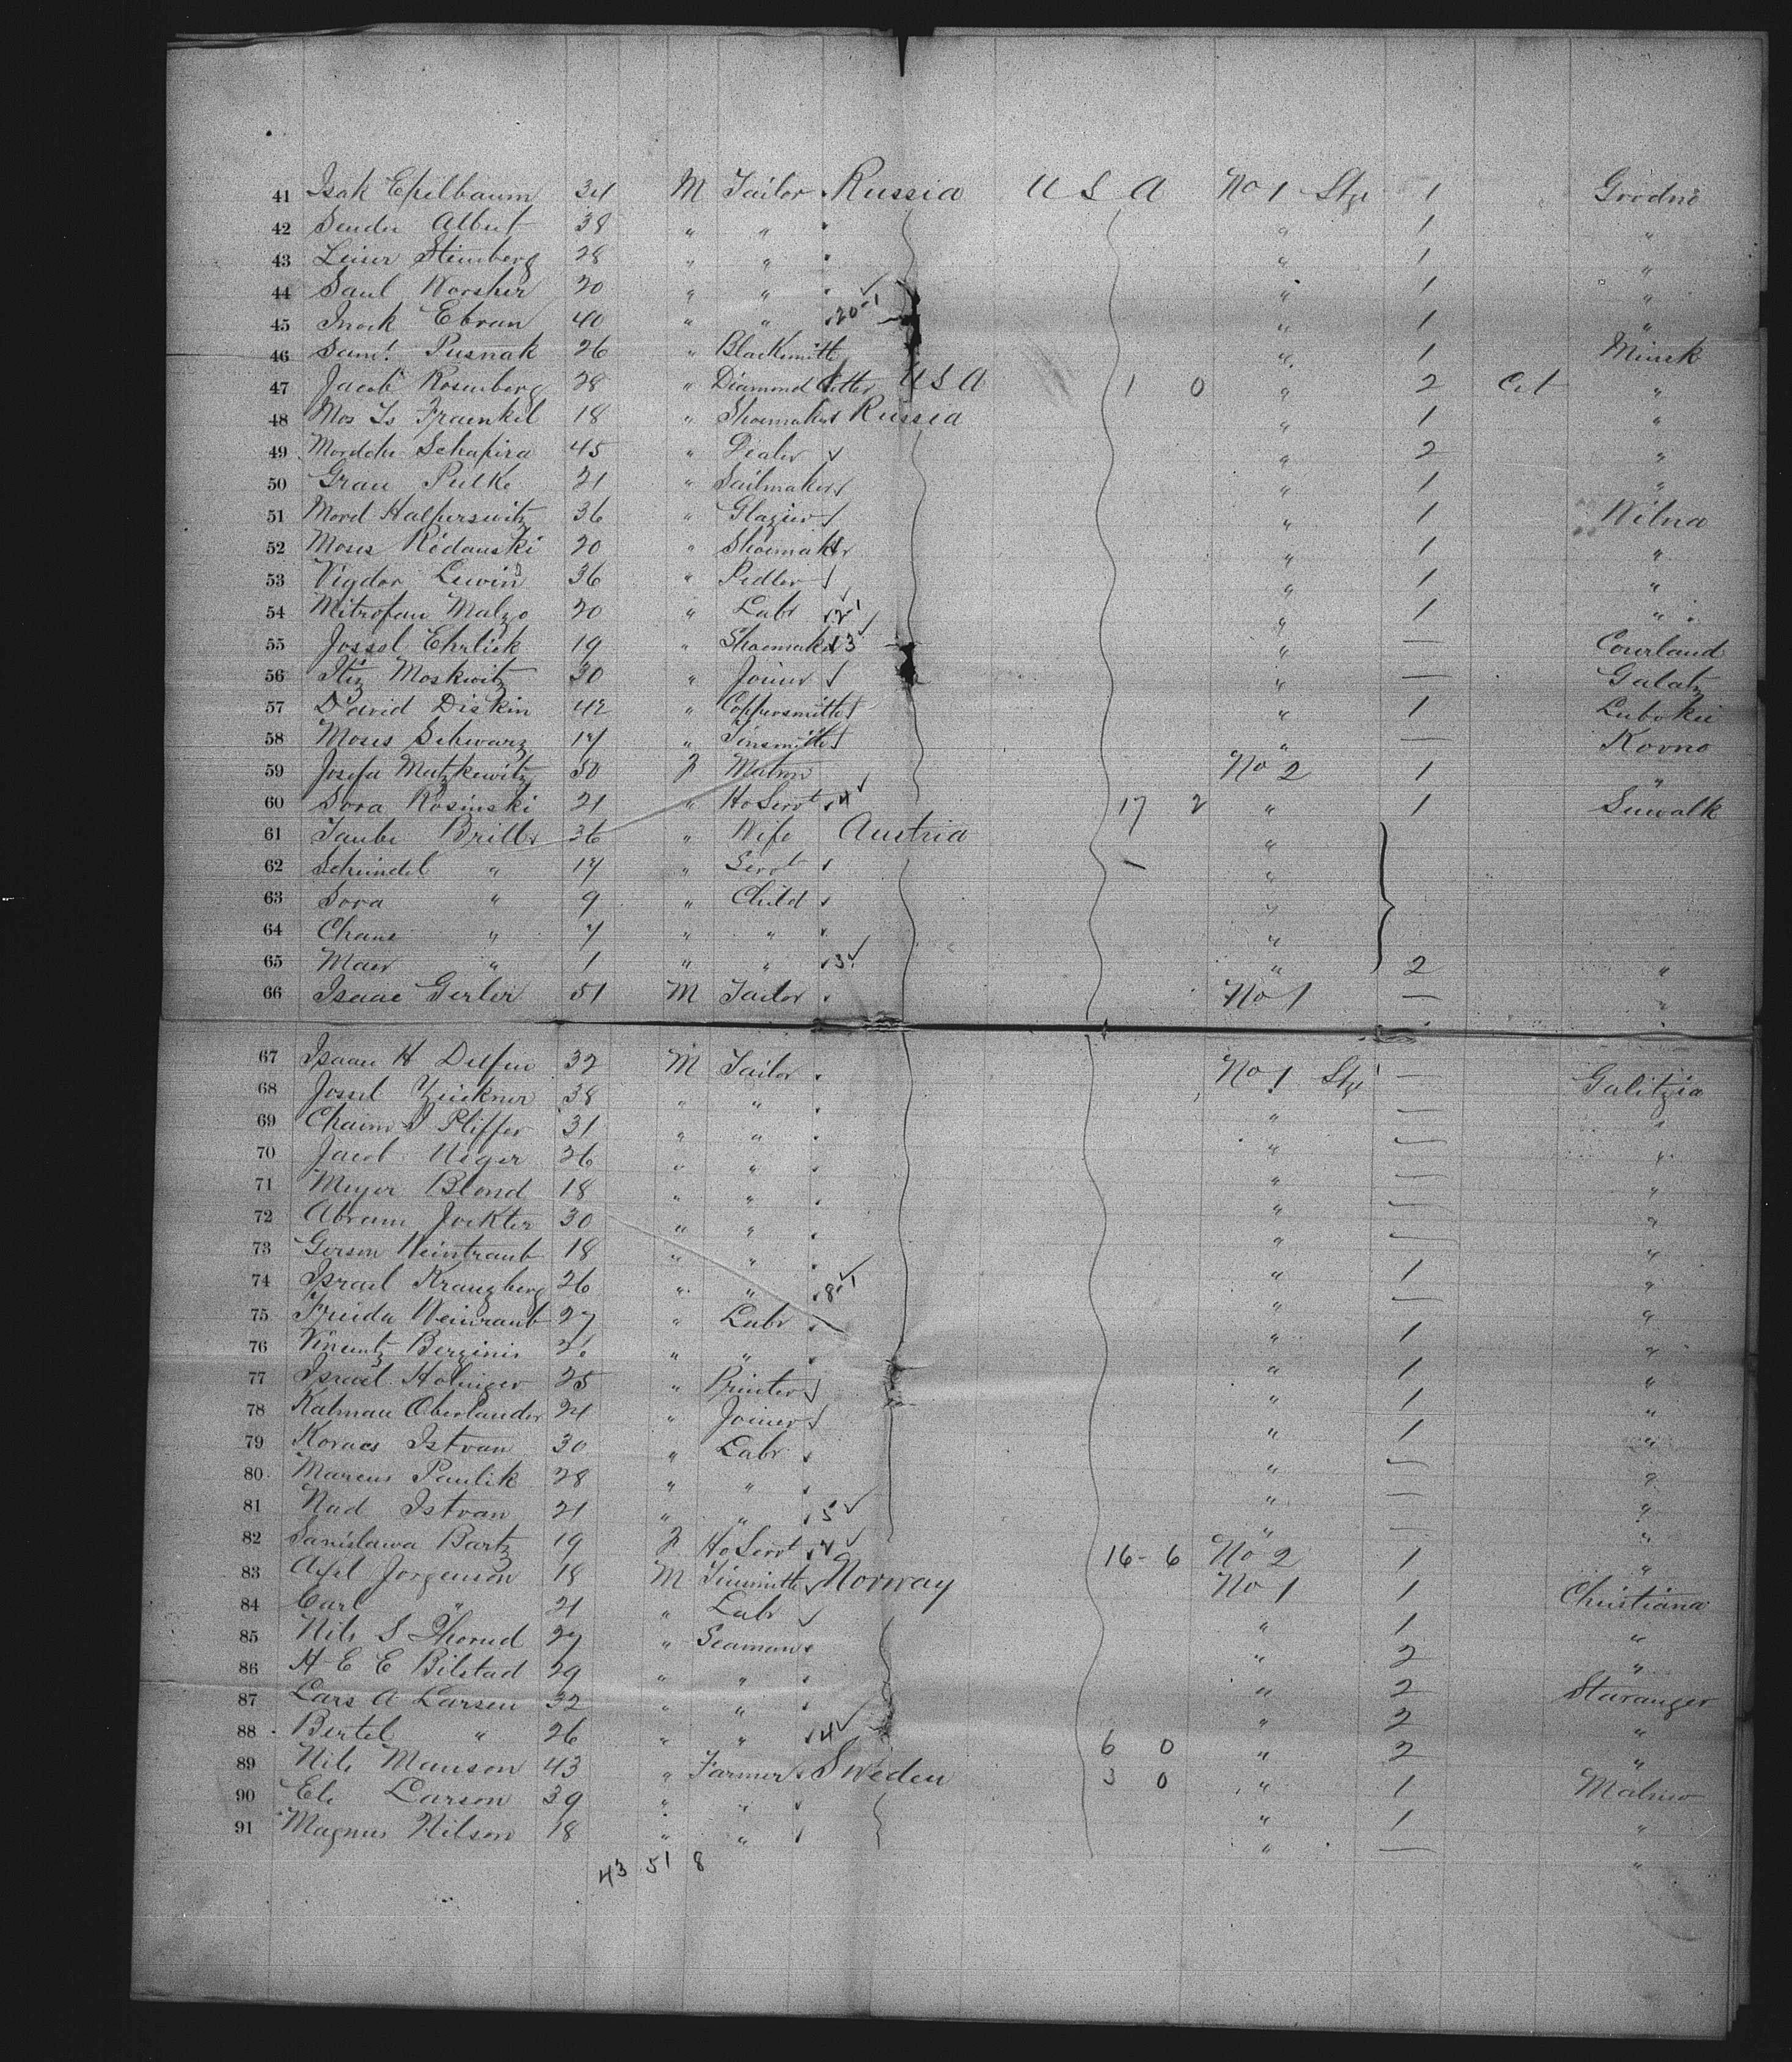 41 Isak Epelbaum 34 M Tailor Russia U S A No 1 Stge 1 Grodno
42 Sender Albert 38 " " " 1 "
43 Leiser Steinberg 28 " " " 1 "
44 Saul Worsher 20 " " " 1 "
45 Ebran 40 " " 20-1 " 1 "
46 Saml. Pusnak 26 " Blacksmith " 1 Minsk
47 Jacob Rosenberg 28 " Diamond Cutter U S A 1 0 " 2 "
48 Mos Is Fraenkel 18 " Shoemaker Russia " 1 "
49 Mordche Schapira 45 " Dealer " 2 "
50 Grau Pulke 21 " Sailmaker " 1 "
51 Mord Halperswitz 36 " Glazier " 1 Wilna
52 Moses Ridanski 20 " Shoemaker " 1 "
53 Vigdor Lewin 36 " Pedler " 1 "
54 Mitrofan Malzo 20 " Labr " 1 "
55 Jossel Ehrlich 19 " Shoemaker 13 " — Courland
56 Itiz Moskwitz 30 " Joiner " — Galatz
57 David Diskin 42 " Coppersmith " 1
58 Moses Schwarz 17 " Tinsmith " — Kovno
59 Josefa Matzkewitz 50 F Matron No 2 1 "
60 Sora Rosinski 21 " Ho Servt 4 17 2 " 1 Suwalk
61 Taube Brill 36 " Wife Austria "
62 Scheindel " 17 " Servt — "
63 Sora " 9 " Child "
64 Chane " 7 " " "
65 Maer " 1 " " " 2 "
66 Isaac Gerler 51 M Tailor No 1 — "
67 Isaac H Delfen 32 M Tailor No 1 Stge — Galitzia
68 Jossel Zeickner 38 " " " — "
69 Chaim S Pliffer 31 " " " — "
70 Jacob Neger 26 " " " — "
71 Meyer Blond 18 " " " — "
72 Abram Jorkter 30 " " " — "
73 Gerson Weintraub 18 " " " 1 "
74 Israel Kranzberg 26 " " 8-1 " — "
75 Freida Weinraub 27 " Labr " 1 "
76 Vincentz Berginis 26 " " " 1 "
77 Israel Holinger 25 " Printer " 1 "
78 Kalman Oberlander 24 " Joiner " 1 "
79 Kovacs Istvan 30 " Labr " — "
80 Marcus Paulik 28 " " " — "
81 Nad Istvan 21 " " 5 " — "
82 Sanislawa Bartz 19 F Ho Servt 16-6 No 2 1 "
83 Axel Jorgenson 18 M Tinsmith Norway No 1 1 Christiana
84 Carl " 21 " Labr " 1 "
85 Nils S Thorud 27 " Seaman " 2 "
86 H E E Bilstad 29 " " " 2 Stavanger
87 Lars A Larsen 32 " " " 2 "
88 Bertel " 26 " " 4 6 0 " 2 "
89 Nils Manson 43 " Farmer Sweden 3 0 " 1 Malmo
90 Ele Larson 39 " " " 1 "
91 Magnus Nilson 18 " " " — "
43 51 8